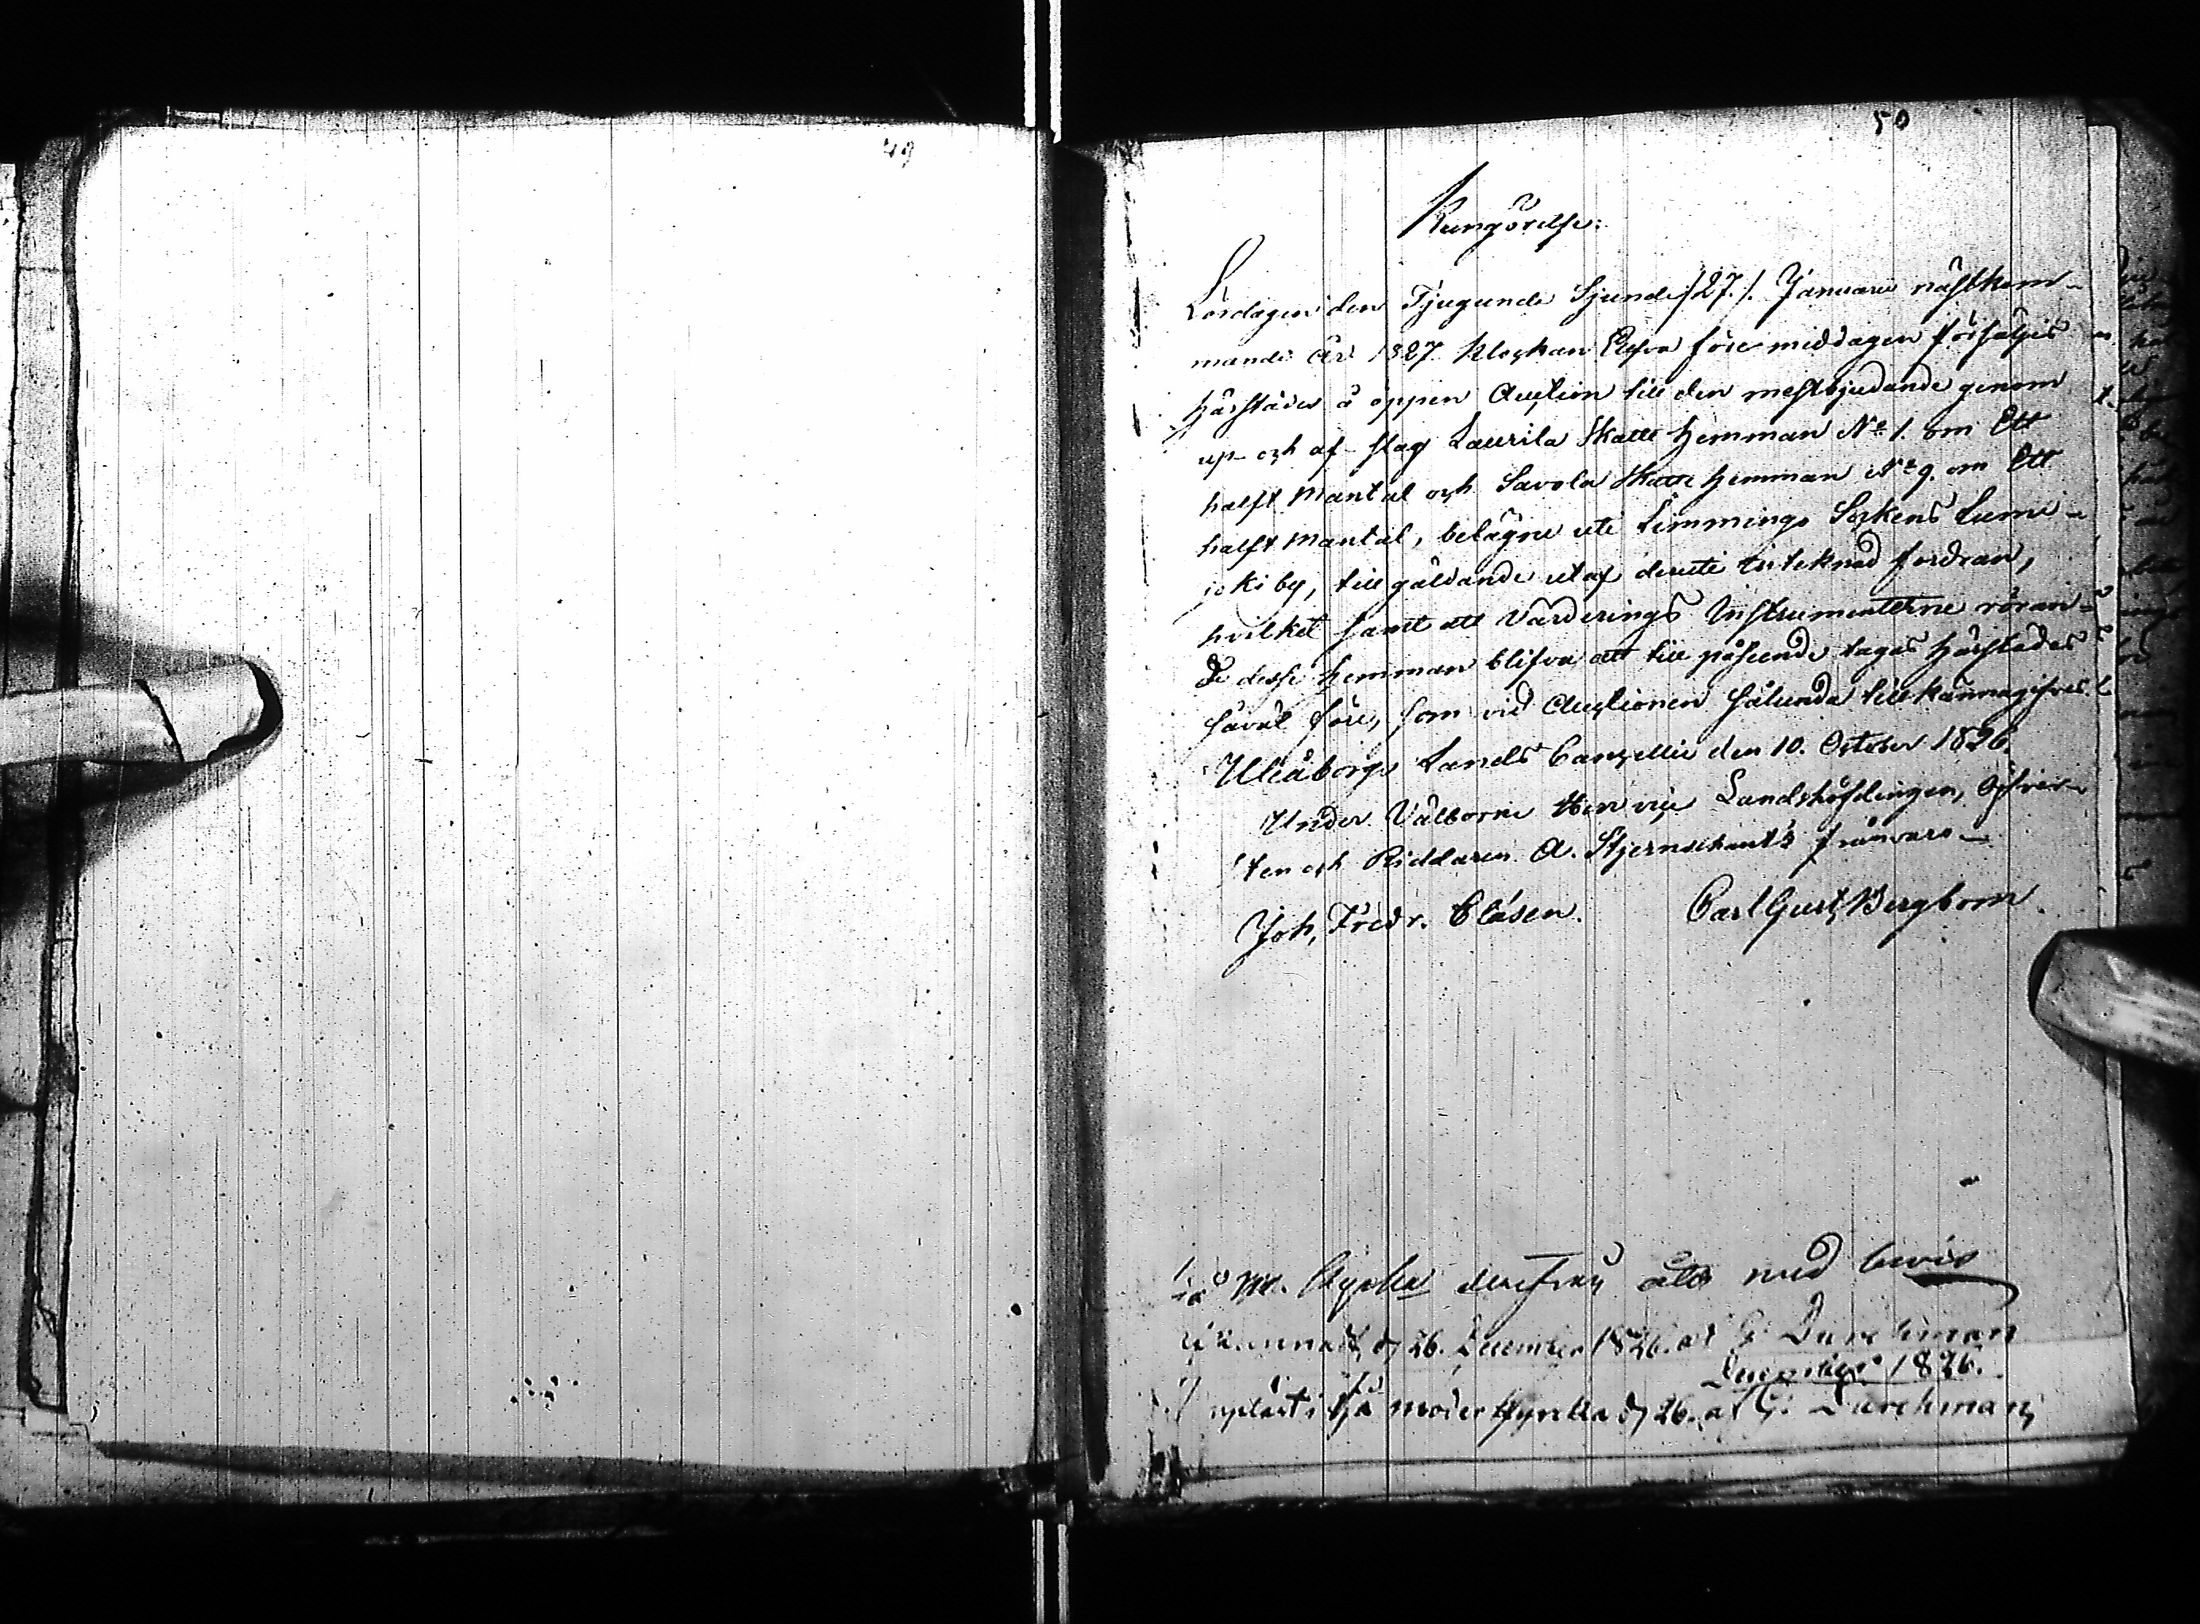 49
50
Kungörelse:
Lördagen den Tjugunde Sjunde /27./. Januarii nästkom-
mande år 1827 klockan Elfva före middagen försäljes
härstädes å öppen Auction till den mestbjudande genom
up- och af- slag Laurila Skatte Hemman No 1. om Ett
halft Mantal och Savola Skatte Hemman No 9. om Ett
halft Mantal, belägne uti Limmingo Sockens Lumi-
joki by, till gäldande utaf deruti intecknad fordran,
hvilket samt att Värderings Instrumenterne röran-
de desse Hemman blifva att till påseende tagas härstädes
såväl före, som vid Auctionen sålunda tillkännagifves.
Uleåborgs Lands Cancellie den 10. October 1826.
Under Välborne Herr vice Landshöfdingen, Öfvers-
ten och Riddaren A. Stjernschantz frånvaro
Joh. Fredr. Clasen. Carl Gust. Bergbom
med bevis
26. December 1826. af G. Durchman
December 1826.
upläst i moder kyrka d. 26. af G. Durchman